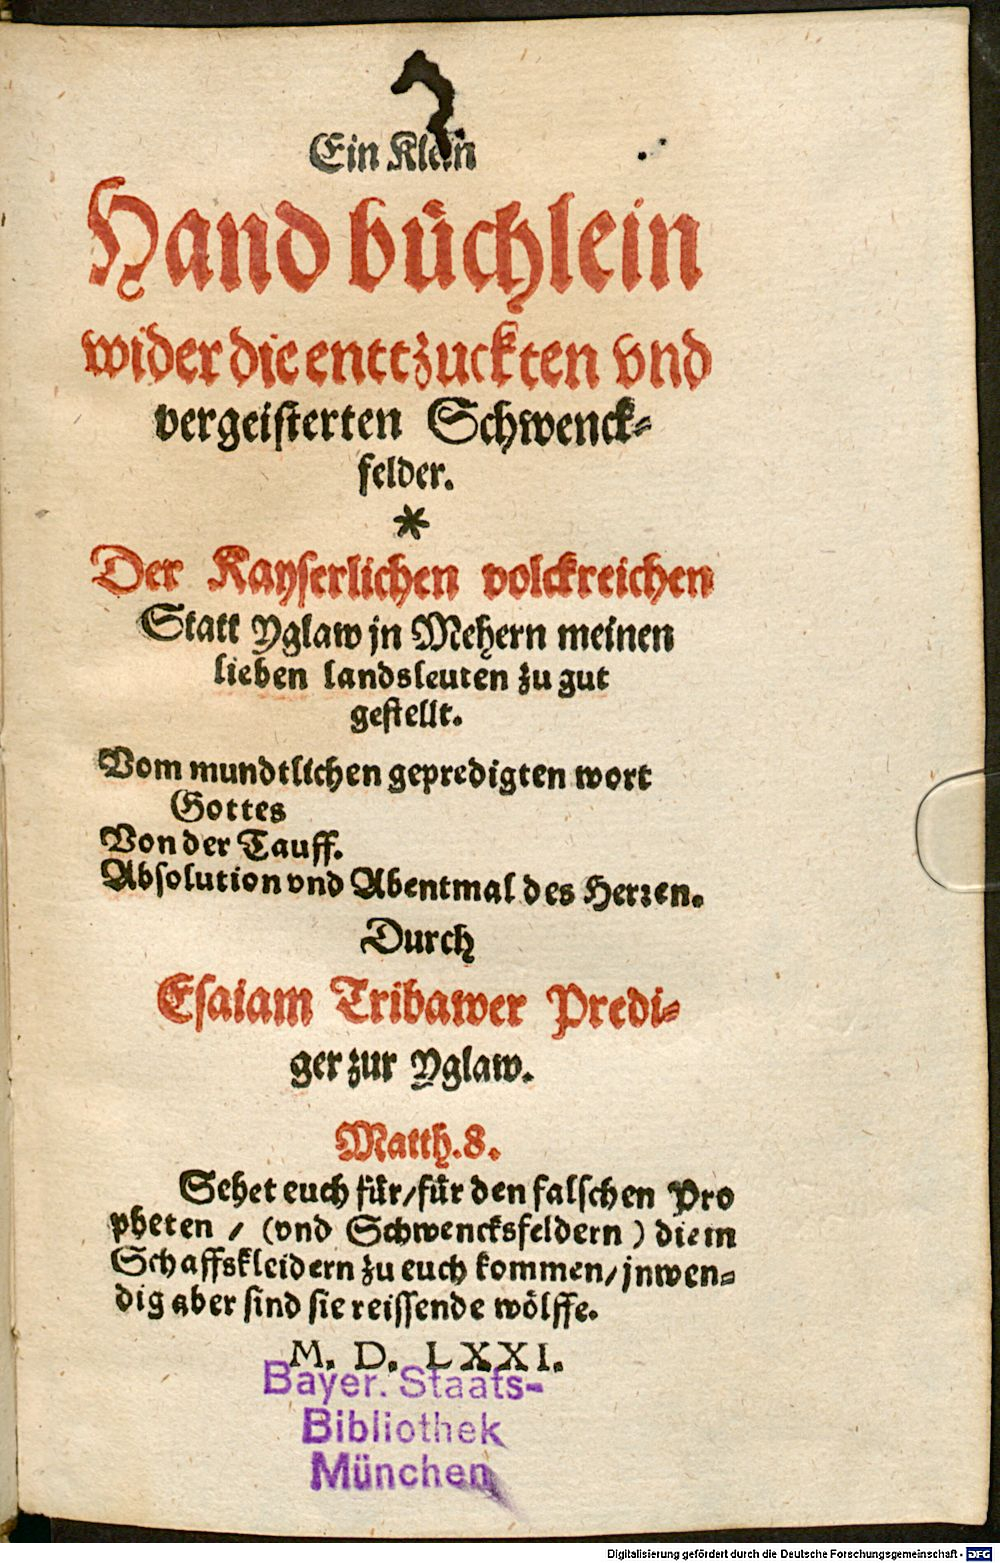 Ein Klein
Hand büchlein
wider die enttzuckten vnd
vergeisterten Schwenck-
felder.
*
Der Kayserlichen volckreichen
Statt Yglaw jn Mehern meinen
lieben landsleuten zu gut
gestellt.
Vom mundtlichen gepredigten wort
Gottes
Von der Tauff.
Absolution vnd Abentmal des Herren.
Durch
Esaiam Tribawer Predi-
ger zur Yglaw.
Matth. 8.
Sehet euch für/für den falschen Pro
pheten / (vnd Schwencksfeldern) die in
Schaffskleidern zu euch kommen/jnwen-
dig aber sind sie reissende wölffe.
M. D. LXXI.
Bayer. Staats-
Bibliothek
München
Digitalisierung gefördert durch die Deutsche Forschungsgemeinschaft - DFG